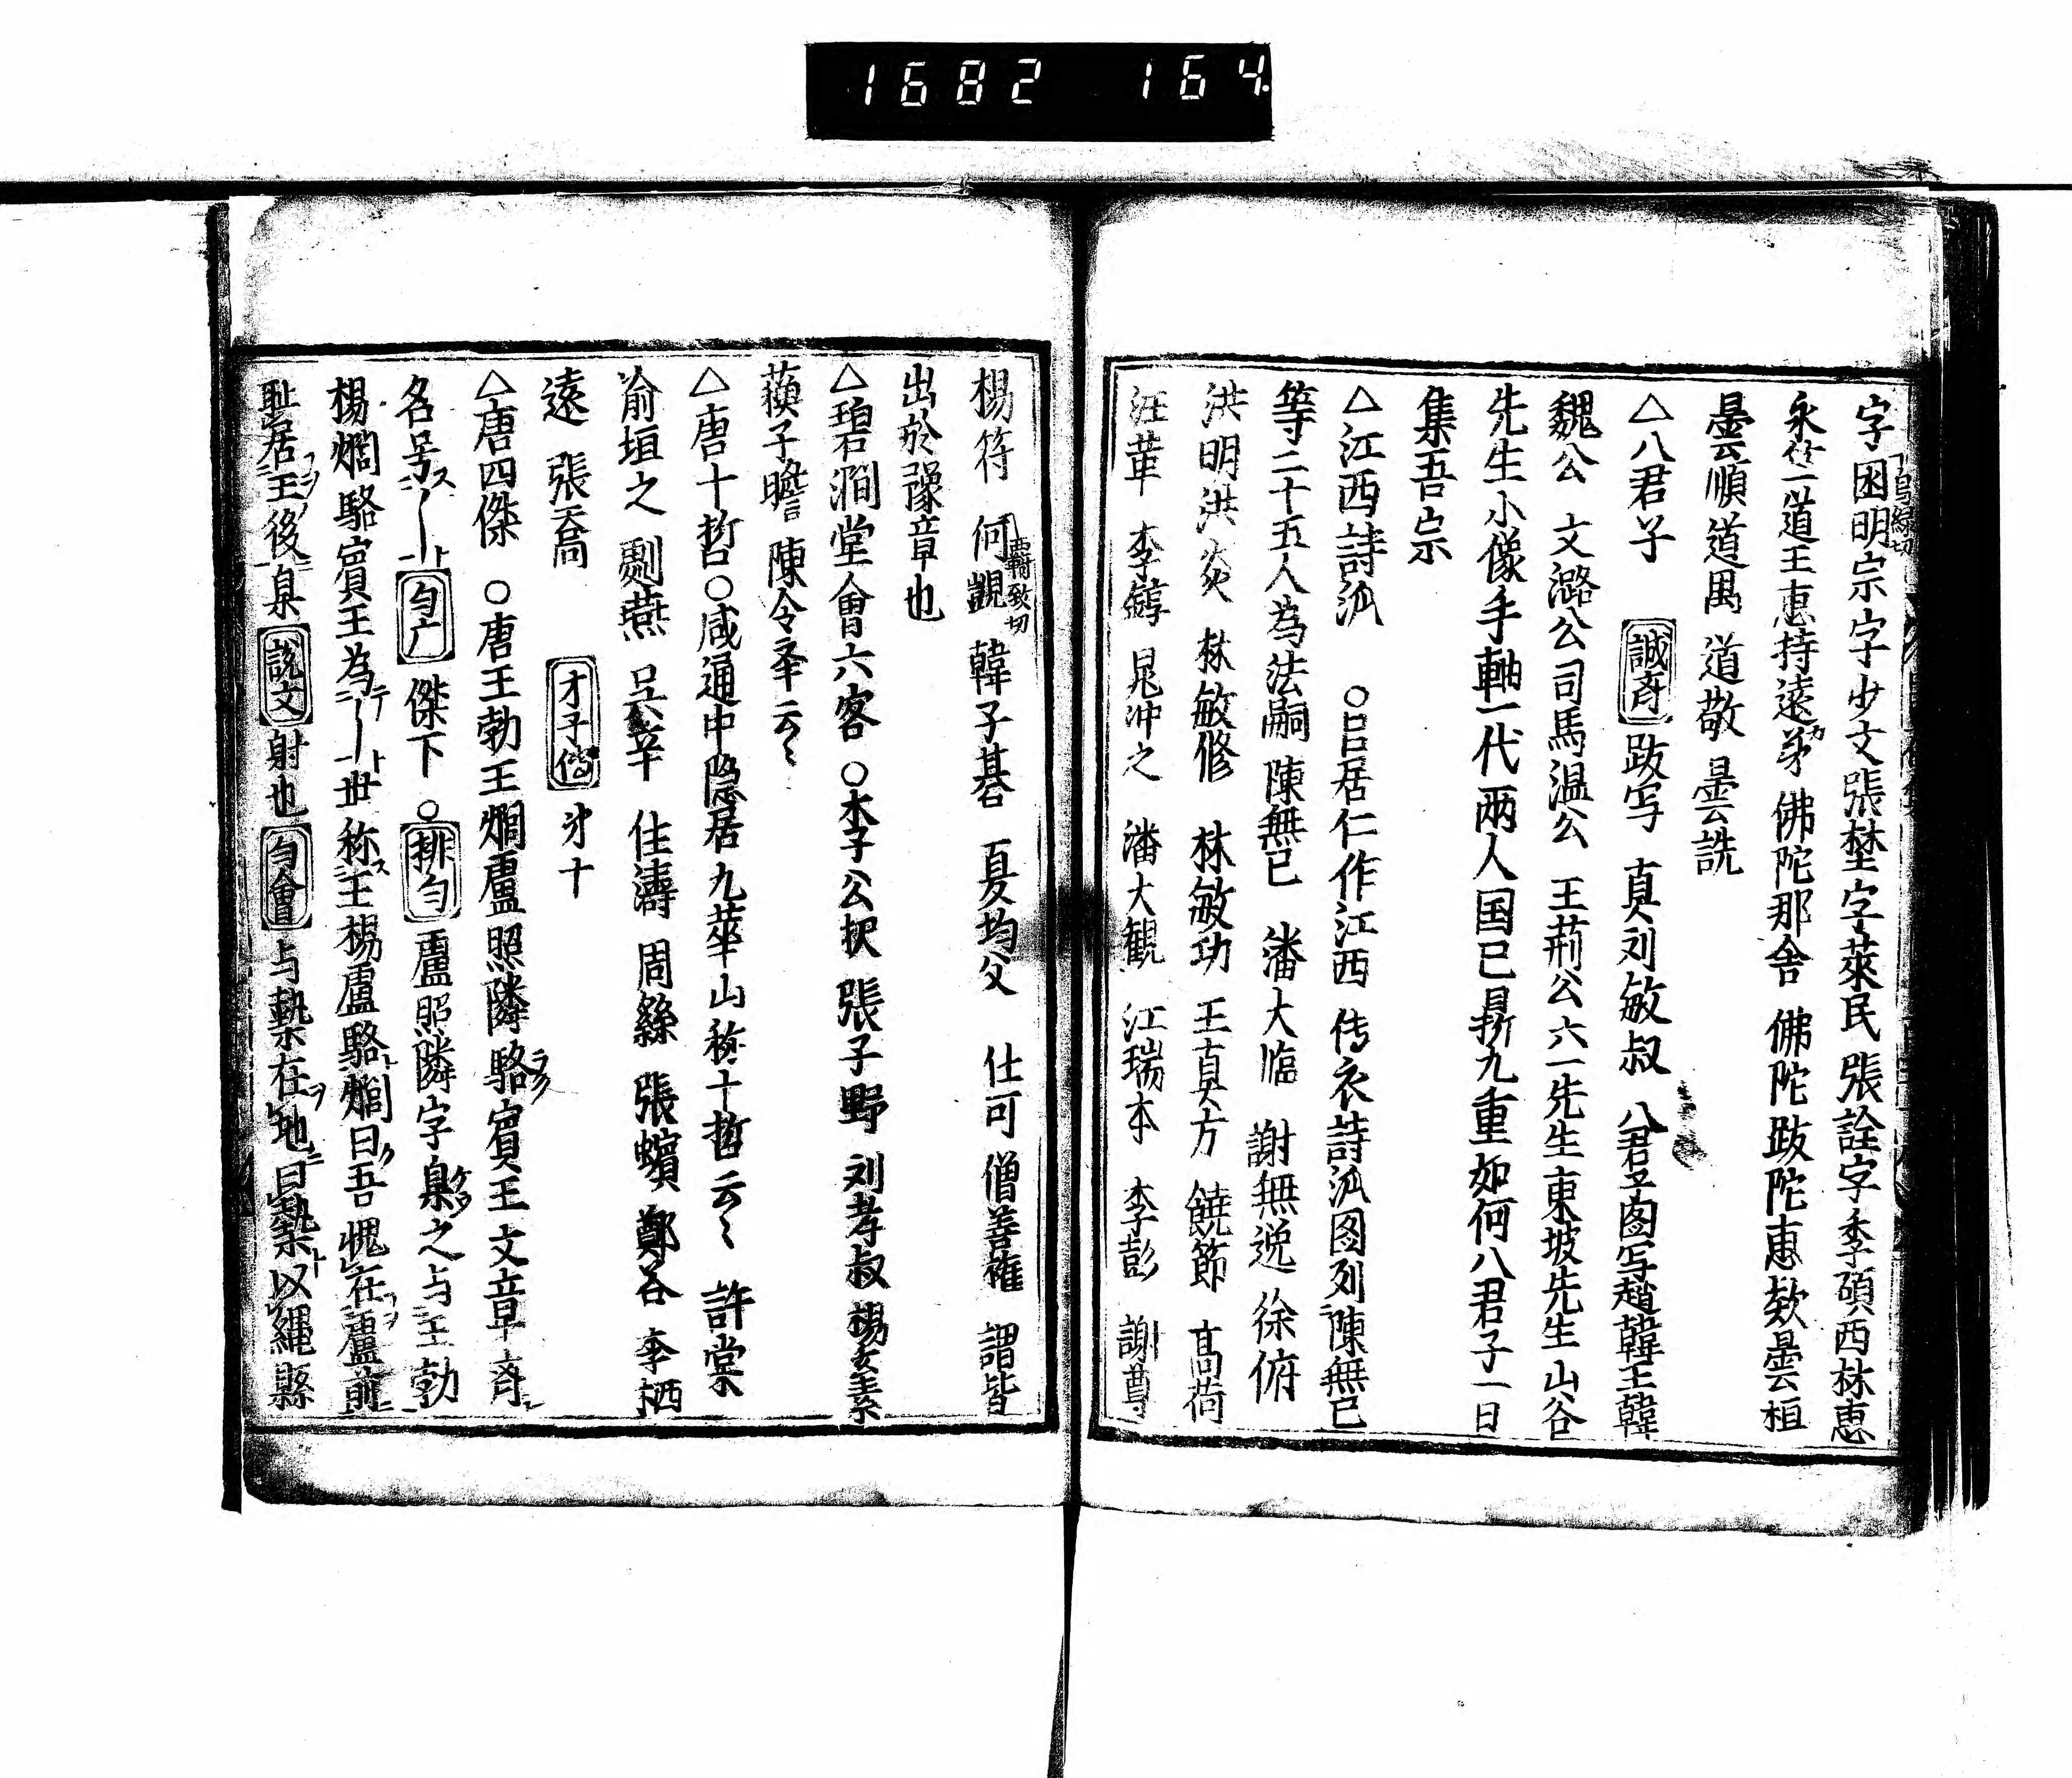 1682 164
字囦明宗字少文張埜字萊民 張詮字季碩西林恵
永 道王恵持遠弟 佛陀那舎 佛陀跋陀恵欸曇云桓
曇云順道禺 道敬 曇云詵
△八君子 誠斉 跋写 真刘敏叔 八君子图写趙韓王韓
魏公 文潞公司馬温公 王荊公六一先生東坡先生山谷
先生小像手軸一代两人国已 九重如何八君子一日
集吾宗
△江西詩派 ○呂居仁作江西 传衣詩派图列陳無已
等二十五人為法嗣 陳無已 潘大臨 謝無逸 徐俯
洪明 洪炎 林敏修 林敏功 王真方 饒節 高荷
汪革 李錞 晁冲之 潘大観 江瑞本 李彭 謝尊
楊符 何覬 致切 韓子碁 夏均父 仕可 僧善権 謂皆
出於豫章也
△碧澗堂會六客 ○李公択 張子野 刘孝叔 楊玄素
蘓子瞻 陳令举云〻
△唐十哲○咸通中隐居九華山称十哲云〻 許棠
俞垣之 劇燕 吴䍧 任濤 周繇 張蠙 鄭谷 李栖
遠 張喬 才子傳 才十
△唐四傑 ○唐王勃王烱盧照隣駱賓王文章斉
名号ス一ト 勻广 傑下 ○排勻 盧照隣字梟之与王勃
楊烱駱賓王為一ト世称ス王楊盧駱ト烱曰吾愧在盧前
耻居王後 梟 説文 射也 勻會 与槷在地曰槷以縄懸